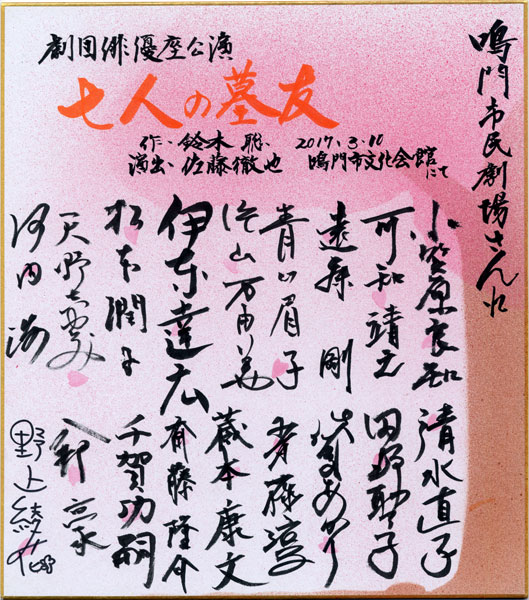 鳴門市民劇場さん江
劇団俳優座公演
七人の墓友
作・鈴木聡
演出・佐藤徹也
2017.3.10
鳴門市文化会館にて
小笠原良知
可知靖之
遠藤 剛
青山眉子
片山万由美
伊東達広
松本潤子
天野眞由美
河内浩
清水直子
田野聖子
斉藤淳
蔵本康文
斉藤隆介
千賀功嗣
八柳豪
野上綾花